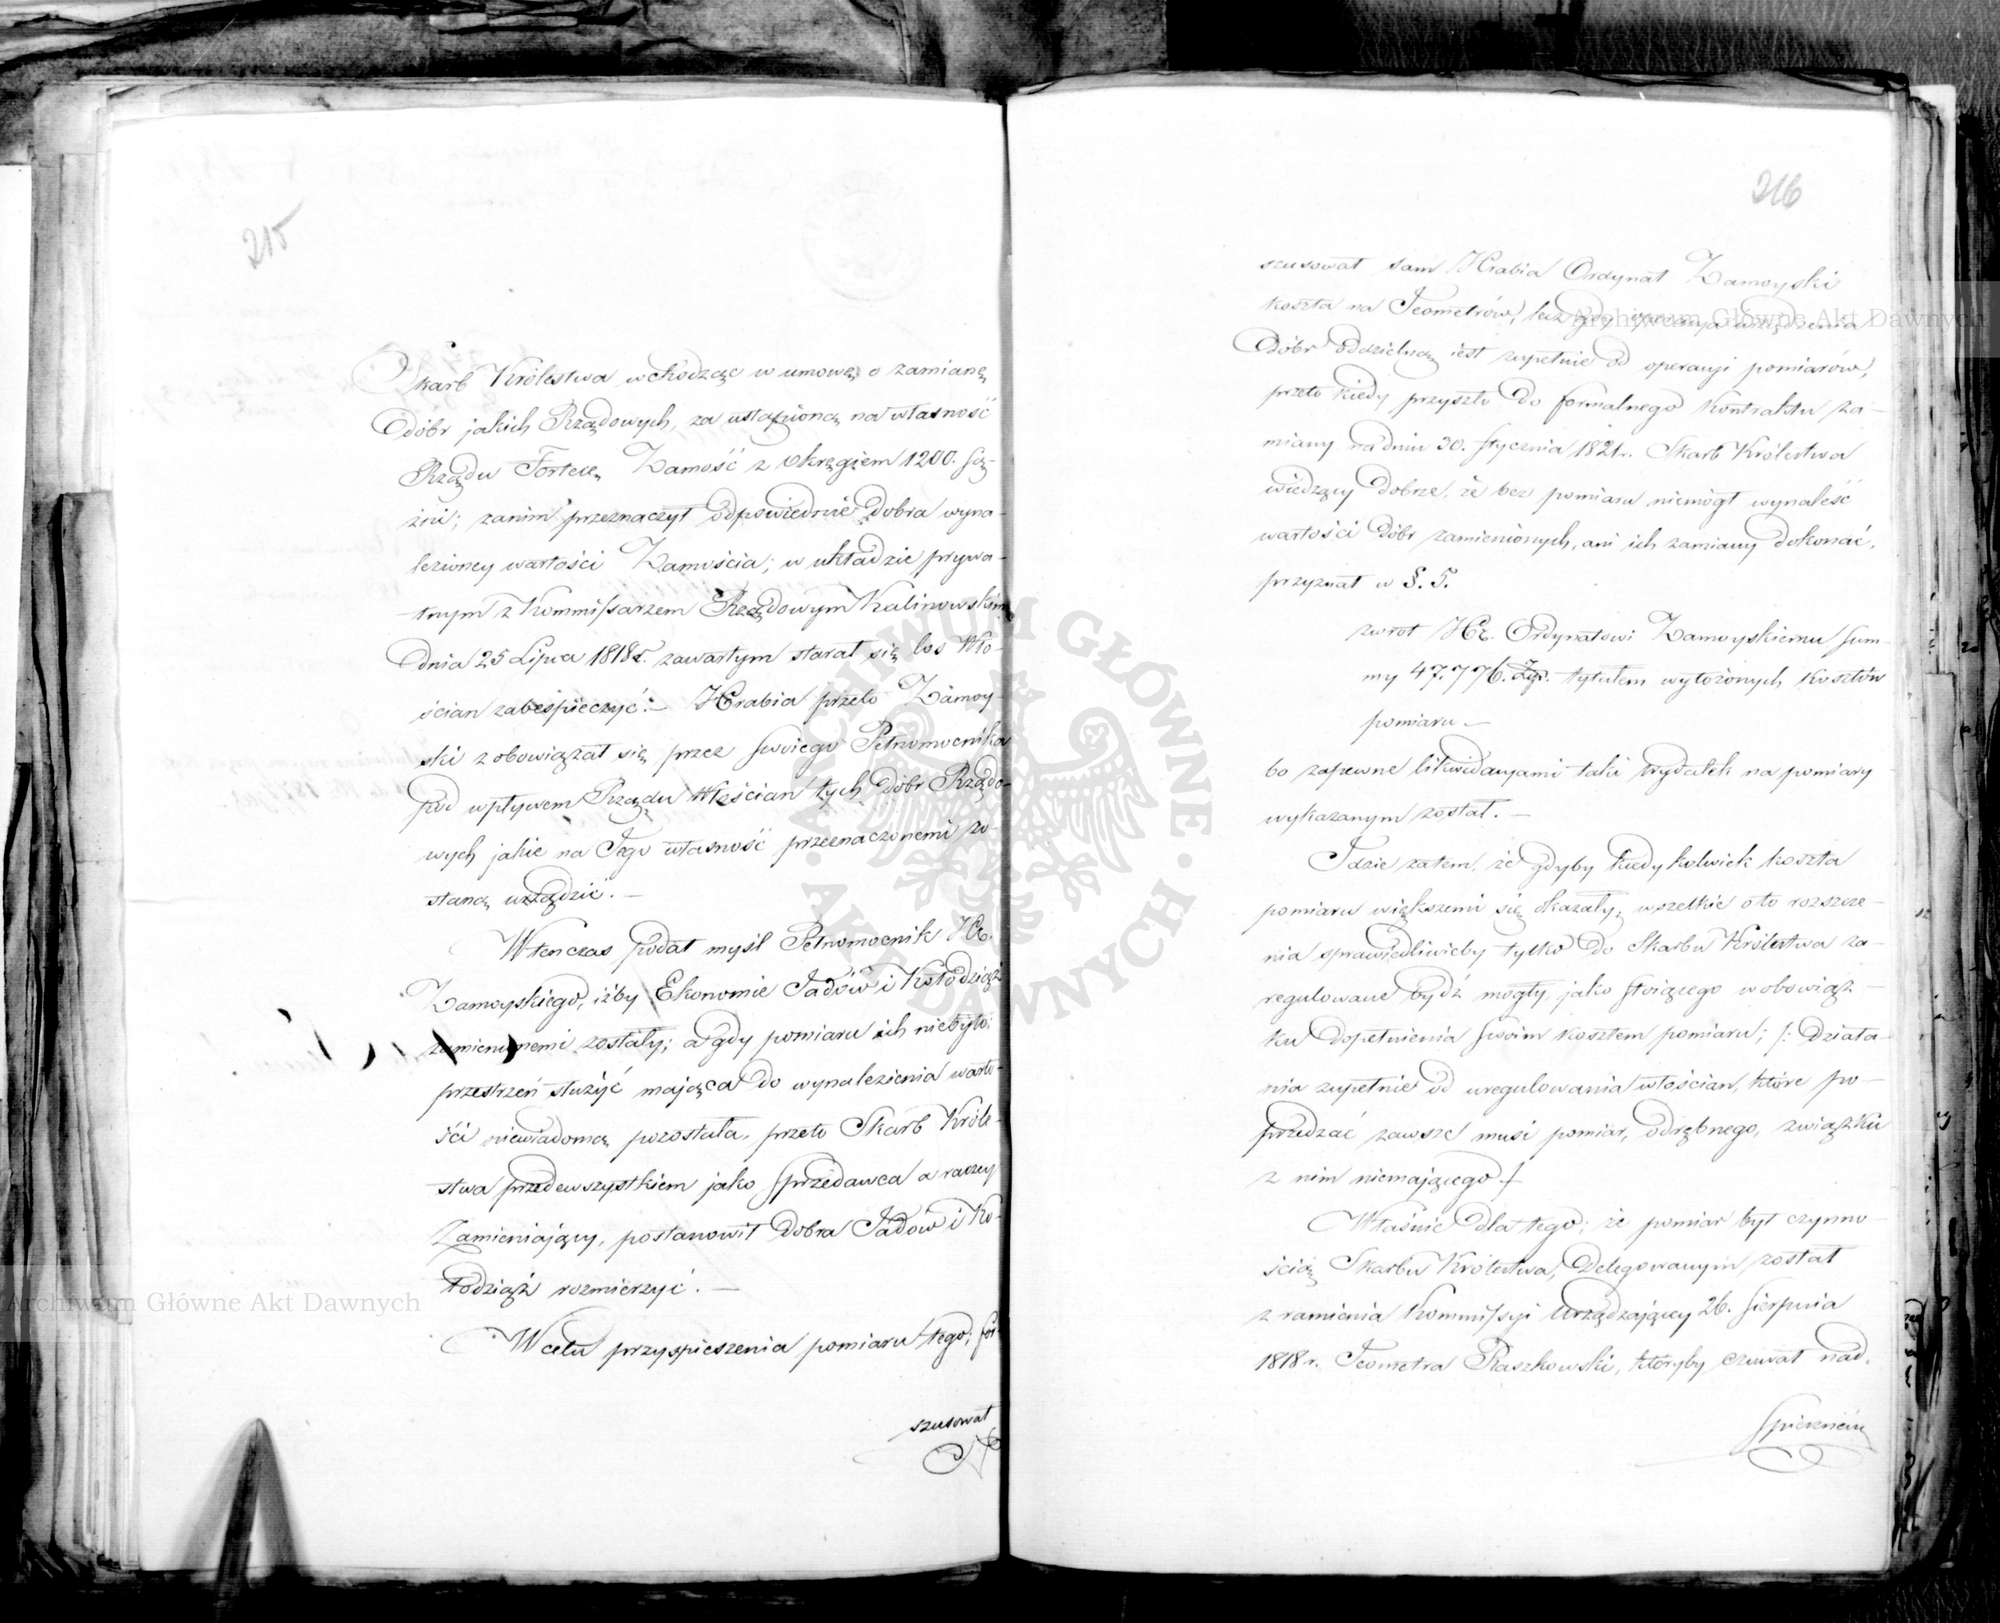 215
Skarb Królestwa wchodząc w umowę o zamianę
dóbr jakich Rządowych, za ustąpioną na własność
Rządu Fortecę Zamość z okręgiem 1200. Są-
żni; zanim przeznaczył odpowiednie dobra wyna-
lezioney wartości Zamościa; w układzie prywa-
tnym z Kommissarzem Rządowym Kalinowskim
dnia 25 Lipca 1818r. zawartym starał się los Wło-
ścian zabespieczyć. – Hrabia przeto Zamoy-
ski zobowiązał się przez swoiego Pełnomocnika
pod wpływem Rządu Włościan tych dóbr Rządo-
wych jakie na Jego własność przeznaczonemi zo-
staną urządzić. –
Wtenczas podał myśl Pełnomocnik Hr.
Zamoyskiego, iżby Ekonomie Jadów i Kołodziąż
zamienionemi zostały; a gdy pomiaru ich niebyło;
przestrzeń służyć mająca do wynalezienia warto-
ści niewiadomą pozostała, przeto Skarb Króle-
stwa przedewszystkiem jako Sprzedawca a raczey
Zamieniający, postanowił dobra Jadów i Ko-
łodziąż rozmierzyć. –
W celu przyspieszenia pomiaru tego; for-
szusował
216
szusował sam Hrabia Ordynat Zamoyski
koszta na Jeometrów, lecz gdy operacya urządzenia
dóbr oddzielną iest zupełnie od operacyi pomiarów,
przeto kiedy przyszło do formalnego Kontraktu za-
miany na dniu 30. Stycznia 1821r. Skarb Królestwa
wiedzący dobrze, że bez pomiaru niemógł wynaleść
wartości dóbr zamienionych, ani ich zamiany dokonać,
przyznał w §. 5.
zwrot Hr. Ordynatowi Zamoyskiemu Sum-
my 47.776. Złp. tytułem wyłożonych kosztów
pomiaru –
bo zapewne likwidacyami taki wydatek na pomiary
wykazanym został. –
Idzie zatem, że gdyby kiedykolwiek koszta
pomiaru większemi się okazały, wszelkie oto rozszcze-
nia sprawiedliwieby tylko do Skarbu Królestwa za-
regulowane bydź mogły, jako stoiącego w obowiąz-
ku dopełnienia swoim kosztem pomiaru; /: Działa-
nia zupełnie od uregulowania włościan, które po-
przedzać zawsze musi pomiar, odrębnego, związku
z nim niemaiącego /
Właśnie dla tego; że pomiar był czynno-
ścią Skarbu Królestwa, Delegowanym został
z ramienia Kommissyi Urządzaiącey 26. Sierpnia
1818r. Jeometra Raszkowski, któryby czuwał nad.
Spiesznem
Archiwum Główne Akt Dawnych
Archiwum Główne Akt Dawnych
ARCHIWUM GŁÓWNE · AKT DAWNYCH ·